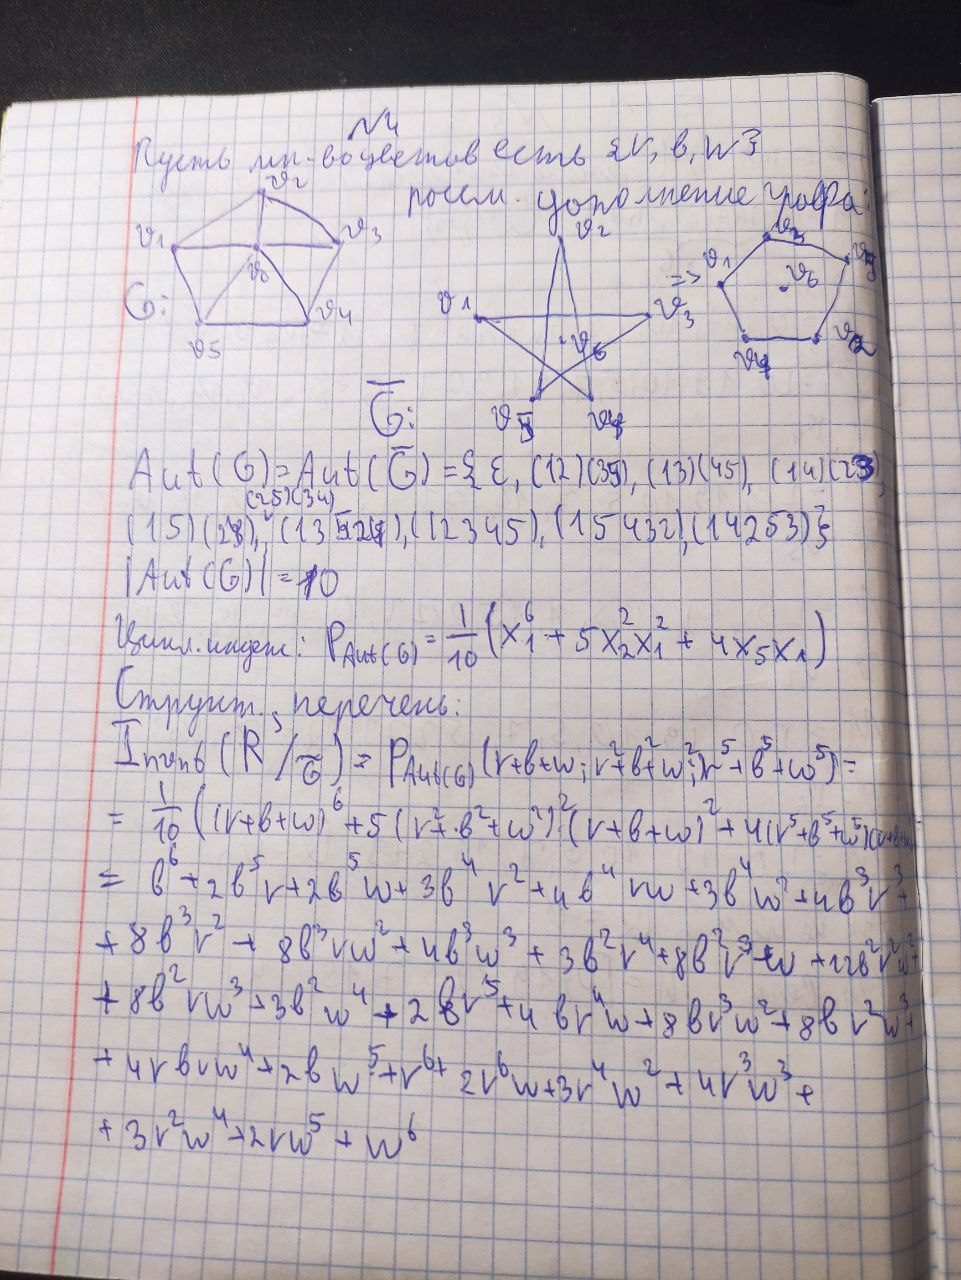 N4
Пусть мн-во цветов есть {r, в, w}
рассм. дополнение графа:
v2 v1 v3 v6 v4 v5
G:
v2 v1 v3 v6 v5 v4
Ḡ:
=> v1 v6
Aut(G) = Aut(Ḡ) = {ε, (12)(35), (13)(45), (14)(23),
(25)(34)
(15)(24), (13524), (12345), (15432), (14253)}
|Aut(G)| = 10
Цикл. индекс: P_Aut(G) = 1/10 (x₁⁶ + 5x₂²x₁² + 4x₅x₁)
Структ. перечень:
(R³/Ḡ) = P_Aut(G) (r+в+w; r²+в²+w²; r⁵+в⁵+w⁵) =
= 1/10 ((r+в+w)⁶ + 5(r²+в²+w²)²(r+в+w)² + 4(r⁵+в⁵+w⁵)(r+в+w)) =
= в⁶ + 2в⁵r + 2в⁵w + 3в⁴r² + 4в⁴rw + 3в⁴w² + 4в³r³ +
+ 8в³r² + 8в³rw² + 4в³w³ + 3в²r⁴ + 8в²r³w + 12в²r²w² +
+ 8в²rw³ + 3в²w⁴ + 2вr⁵ + 4вr⁴w + 8вr³w² + 8вr²w³ +
+ 4rвw⁴ + 2вw⁵ + r⁶ + 2r⁶w + 3r⁴w² + 4r³w³ +
+ 3r²w⁴ + 2rw⁵ + w⁶